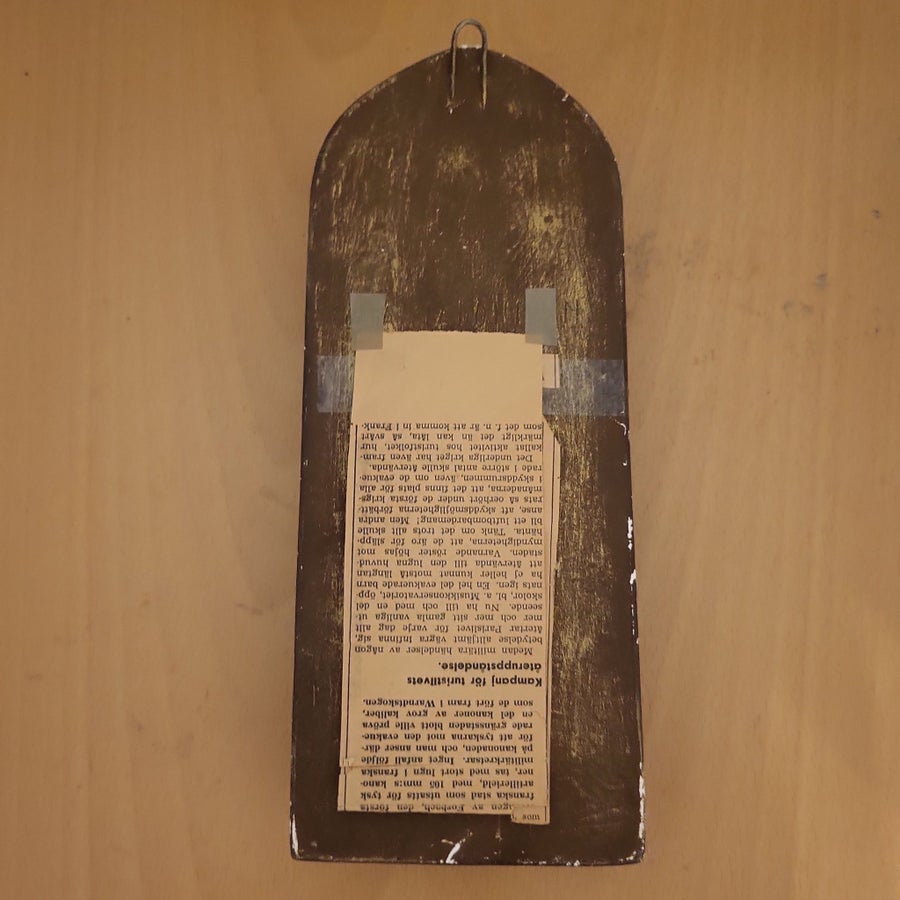 av Forbach, den första
franska stad som utsatts för tysk
artillerield, med 105 mm:s kano-
ner, tas med stort lugn i franska
militärkretsar. Inget anfall följde
på kanonaden, och man anser där-
för att tyskarna mot den evakue-
rade gränsstaden blott ville pröva
en del kanoner av grov kaliber,
som de fört fram i Warndtskogen.
Kampanj för turistlivets
återuppståndelse.
Medan militära händelser av någon
betydelse alltjämt vägra infinna sig,
återtar Parislivet för varje dag allt
mer och mer sitt gamla vanliga ut-
seende. Nu ha till och med en del
skolor, bl. a. Musikkonservatoriet, öpp-
nats igen. En hel del evakuerade barn
ha ej heller kunnat motstå längtan
att återvända till den lugna huvud-
staden. Varnande röster höjas mot
myndigheterna, att de äro för släpp-
hänta. Tänk om det trots allt skulle
bli ett luftbombardemang! Men andra
anse, att skyddsmöjligheterna förbätt-
rats så oerhört under de första krigs-
månaderna, att det finns plats för alla
i skyddsrummen, även om de evakue-
rade i större antal skulle återvända.
Det underliga kriget har även fram-
kallat en aktivitet hos turistfolket, hur
märkligt det än kan låta, så svårt
som det f. n. är att komma in i Frank-